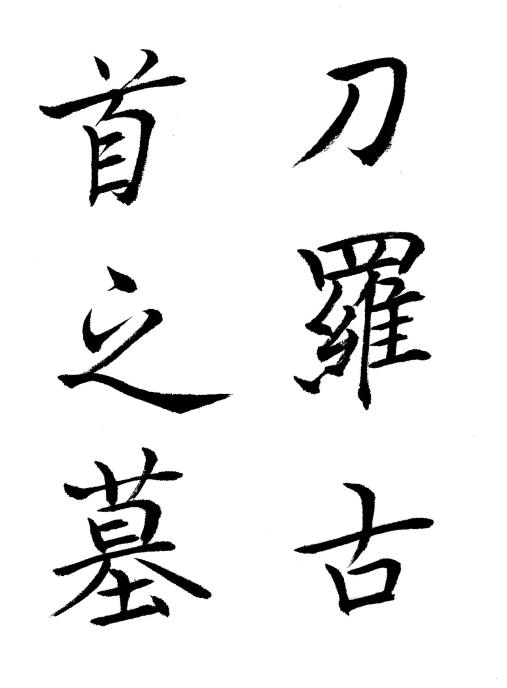 刀羅古
首之墓